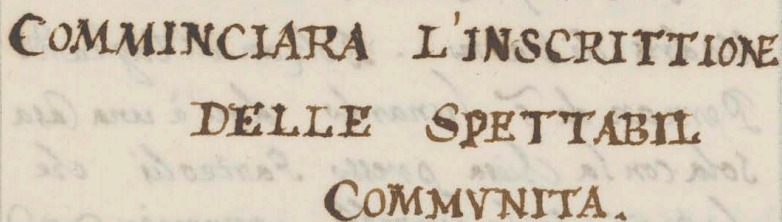 COMMINCIARA L'INSCRITTIONE
DELLE SPETTABIL
COMMVNITA.